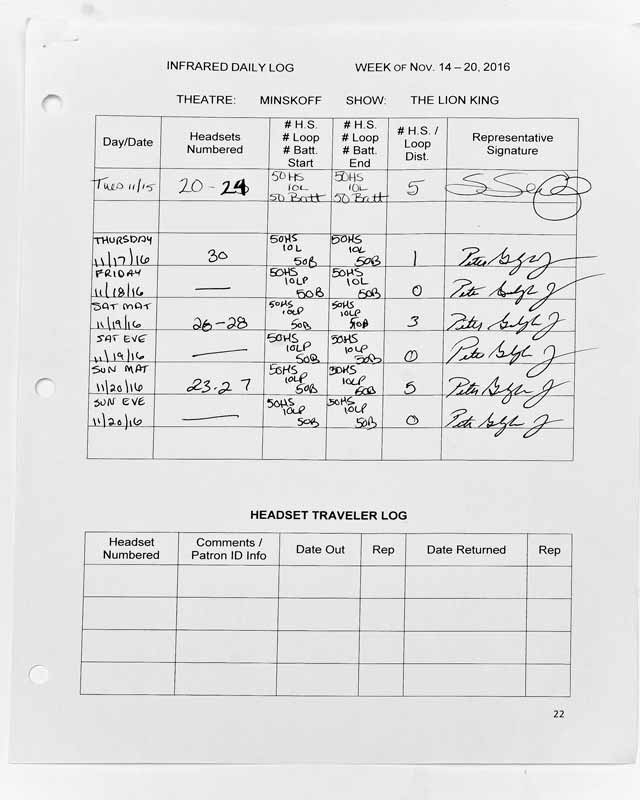 INFRARED DAILY LOG WEEK OF NOV. 14 – 20, 2016
THEATRE: MINSKOFF SHOW: THE LION KING
Day/Date Headsets Numbered # H.S. # Loop # Batt. Start # H.S. # Loop # Batt. End # H.S. / Loop Dist. Representative Signature
TUES 11/15 20 - 24 50HS 10L 50 Batt 50HS 10L 50 Batt 5
THURSDAY 11/17/16 30 50HS 10L 50B 50HS 10L 50B 1 Peter
FRIDAY 11/18/16 — 50HS 10LP 50B 50HS 10L 50B 0 Peter
SAT MAT 11/19/16 26-28 50HS 10LP 50B 50HS 10LP 50B 3 Peter
SAT EVE 11/19/16 — 50HS 10LP 50B 50HS 10LP 50B 0 Peter
SUN MAT 11/20/16 23-27 50HS 10LP 50B 50HS 10LP 50B 5 Peter
SUN EVE 11/20/16 — 50HS 10LP 50B 50HS 10LP 50B 0 Peter
HEADSET TRAVELER LOG
Headset Numbered Comments / Patron ID Info Date Out Rep Date Returned Rep
22